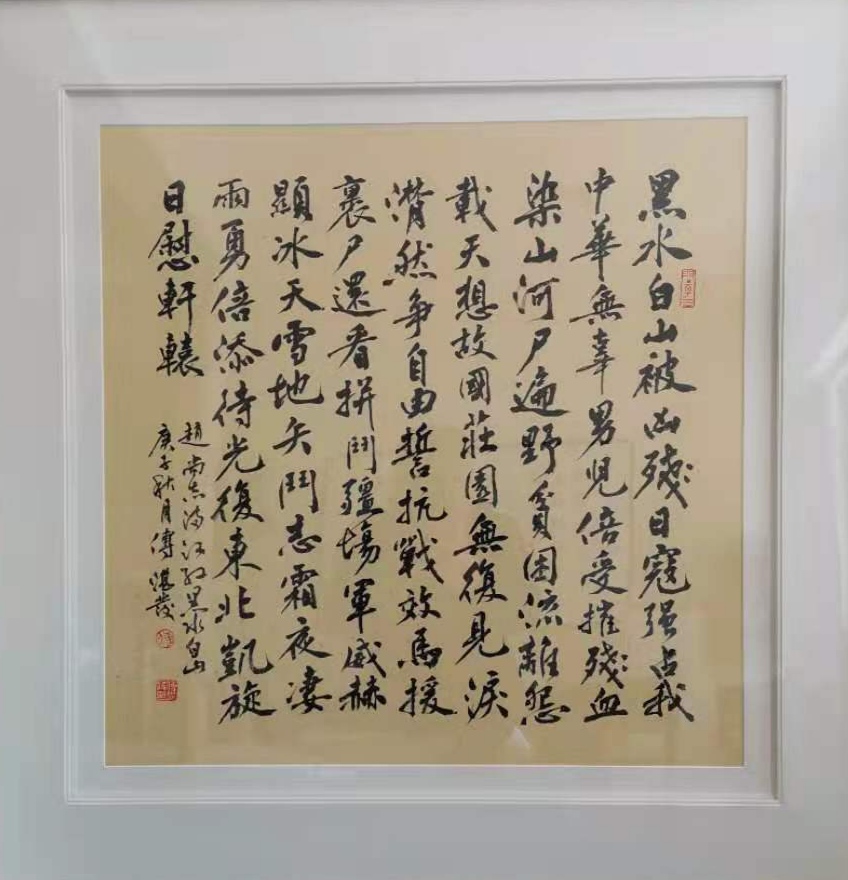 黑水白山被凶殘日寇强占我
中華無辜男児倍受摧殘血
染山河尸遍野貧困流離怨
載天想故國莊園無復見淚
潸然争自由誓抗戰效馬援
裹尸還看拼鬥疆場軍威赫
顯冰天雪地矢鬥志霜夜凄
雨勇倍添待光復東北凱旋
日慰軒轅
趙尚志满江红黑水白山
庚子秋月傅